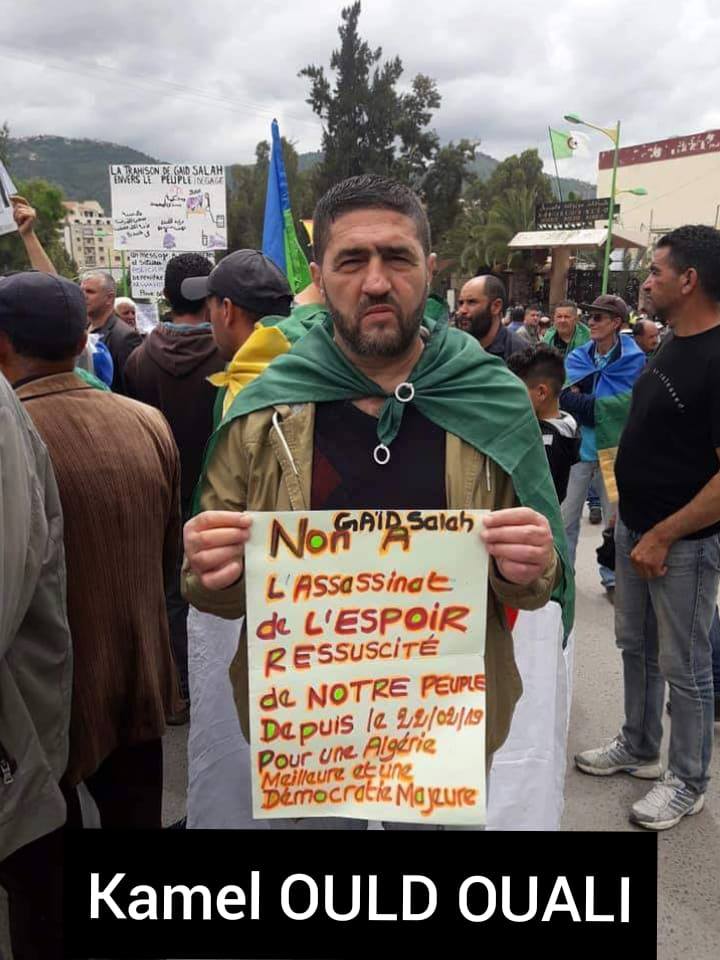 LA TRAHISON DE GAID SALAH
ENVERS LE PEUPLE DEGAGE
Un message
GAÏD Salah
Non A
L'Assassinat
de L'ESPOIR
RESSUSCITÉ
de NOTRE PEUPLE
Depuis le 22/02/19
Pour une Algérie
Meilleure et une
Démocratie Majeure
Kamel OULD OUALI